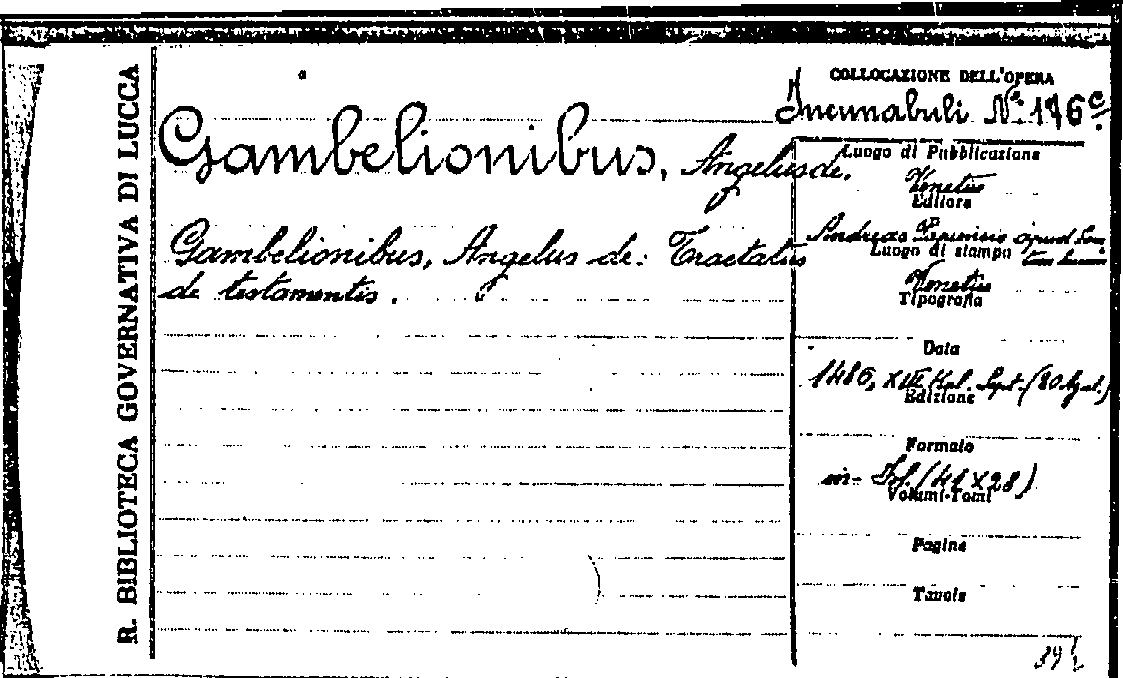 R. BIBLIOTECA GOVERNATIVA DI LUCCA
Gambelionibus, Angelus de.
Gambelionibus, Angelus de: Tractatus
de testamentis.
COLLOCAZIONE DELL'OPERA
Incunabuli N.º 176c
Luogo di Pubblicazione
Venetiis
Editore
Andreas apud
Luogo di stampa
Venetiis
Tipografia
Data
1486, XIII Kal. Sept.
Edizione
Formato
in- Fol. (41x28)
Volumi-Tomi
Pagine
Tavole